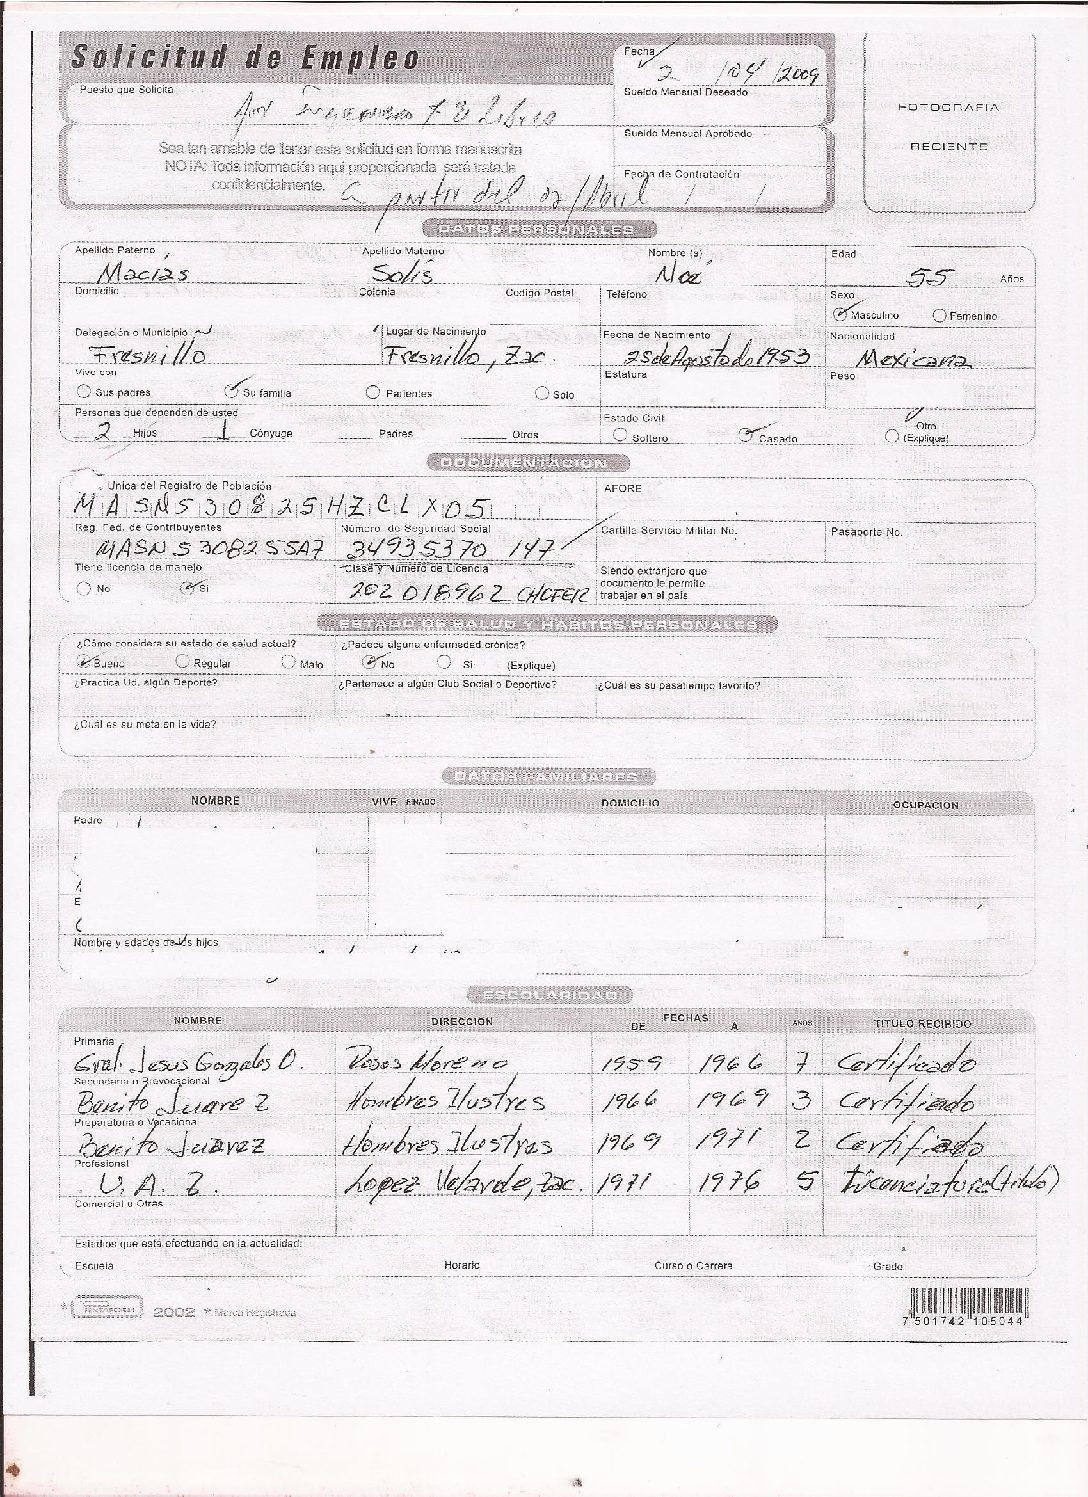 Solicitud de Empleo
Fecha
2 /04 /2009
Puesto que Solicita
Sueldo Mensual Deseado
FOTOGRAFIA
RECIENTE
Sueldo Mensual Aprobado
Sea tan amable de llenar esta solicitud en forma manuscrita
NOTA: Toda información aquí proporcionada será tratada
confidencialmente.
Fecha de Contratación
a partir del 02/Abril / /
DATOS PERSONALES
Apellido Paterno Apellido Materno Nombre (s) Edad
Macías Solís Noé 55 Años
Domicilio Colonia Codigo Postal Teléfono Sexo
Masculino Femenino
Delegación o Municipio Lugar de Nacimiento Fecha de Nacimiento Nacionalidad
Fresnillo Fresnillo, Zac. 25 de Agosto de 1953 Mexicana
Vive con Estatura Peso
Sus padres Su familia Parientes Solo
Personas que dependen de usted Estado Civil
2 Hijos 1 Cónyuge Padres Otros Soltero Casado Otro (Explique)
DOCUMENTACION
Unica del Registro de Población AFORE
MASN530825HZCLX05
Reg. Fed. de Contribuyentes Número de Seguridad Social Cartilla Servicio Militar No. Pasaporte No.
MASN5308255A7 34935370 147
Tiene licencia de manejo Clase y Número de Licencia Siendo extranjero que
documento le permite
trabajar en el país
No Si 202018962 CHOFER
ESTADO DE SALUD Y HABITOS PERSONALES
¿Cómo considera su estado de salud actual? ¿Padece alguna enfermedad crónica?
Bueno Regular Malo No Si (Explique)
¿Practica Ud. algún Deporte? ¿Pertenece a algún Club Social o Deportivo? ¿Cuál es su pasatiempo favorito?
¿Cuál es su meta en la vida?
DATOS FAMILIARES
NOMBRE VIVE FINADO DOMICILIO OCUPACION
Padre
Nombre y edades de los hijos
ESCOLARIDAD
NOMBRE DIRECCION FECHAS DE A AÑOS TITULO RECIBIDO
Primaria
Gral. Jesus Gonzales O. Rosas Moreno 1959 1966 7 Certificado
Secundaria o Prevocacional
Benito Juarez Hombres Ilustres 1966 1969 3 Certifiado
Preparatoria o Vocacional
Benito Juarez Hombres Ilustres 1969 1971 2 Certifiado
Profesional
U.A.Z. Lopez Velarde, Zac. 1971 1976 5 Licenciatura (titulo)
Comercial u Otras
Estudios que está efectuando en la actualidad:
Escuela Horario Curso o Carrera Grado
2002 * Marca Registrada
7 501742 105044